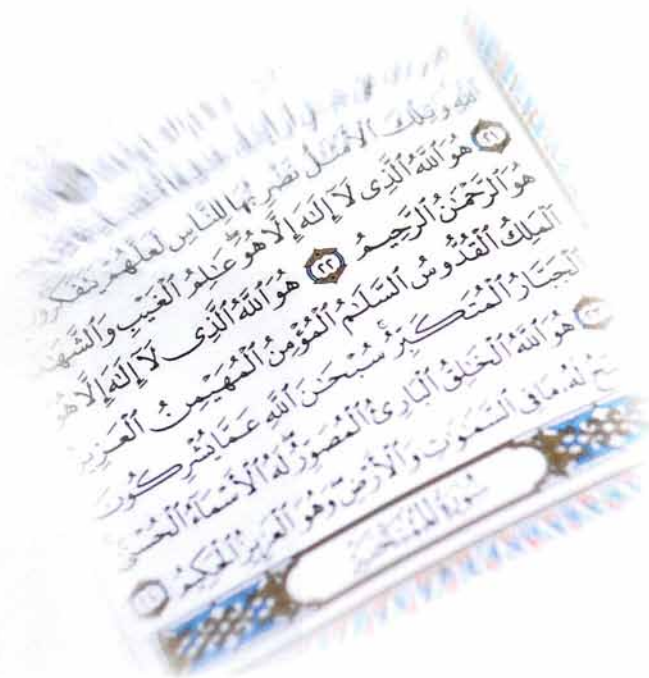 ٱللَّهِ وَتِلْكَ ٱلْأَمْثَٰلُ نَضْرِبُهَا لِلنَّاسِ لَعَلَّهُمْ يَتَفَكَّرُونَ
٢١ هُوَ ٱللَّهُ ٱلَّذِى لَآ إِلَٰهَ إِلَّا هُوَ عَٰلِمُ ٱلْغَيْبِ وَٱلشَّهَٰ
هُوَ ٱلرَّحْمَٰنُ ٱلرَّحِيمُ ٢٢ هُوَ ٱللَّهُ ٱلَّذِى لَآ إِلَٰهَ إِلَّا هُوَ
ٱلْمَلِكُ ٱلْقُدُّوسُ ٱلسَّلَٰمُ ٱلْمُؤْمِنُ ٱلْمُهَيْمِنُ ٱلْعَزِيزُ
ٱلْجَبَّارُ ٱلْمُتَكَبِّرُ ۚ سُبْحَٰنَ ٱللَّهِ عَمَّا يُشْرِكُونَ
٢٣ هُوَ ٱللَّهُ ٱلْخَٰلِقُ ٱلْبَارِئُ ٱلْمُصَوِّرُ ۖ لَهُ ٱلْأَسْمَآءُ ٱلْحُسْنَىٰ
بِّحُ لَهُۥ مَا فِى ٱلسَّمَٰوَٰتِ وَٱلْأَرْضِ ۖ وَهُوَ ٱلْعَزِيزُ ٱلْحَكِيمُ ٢٤
سُورَةُ ٱلْمُمْتَحِنَةِ